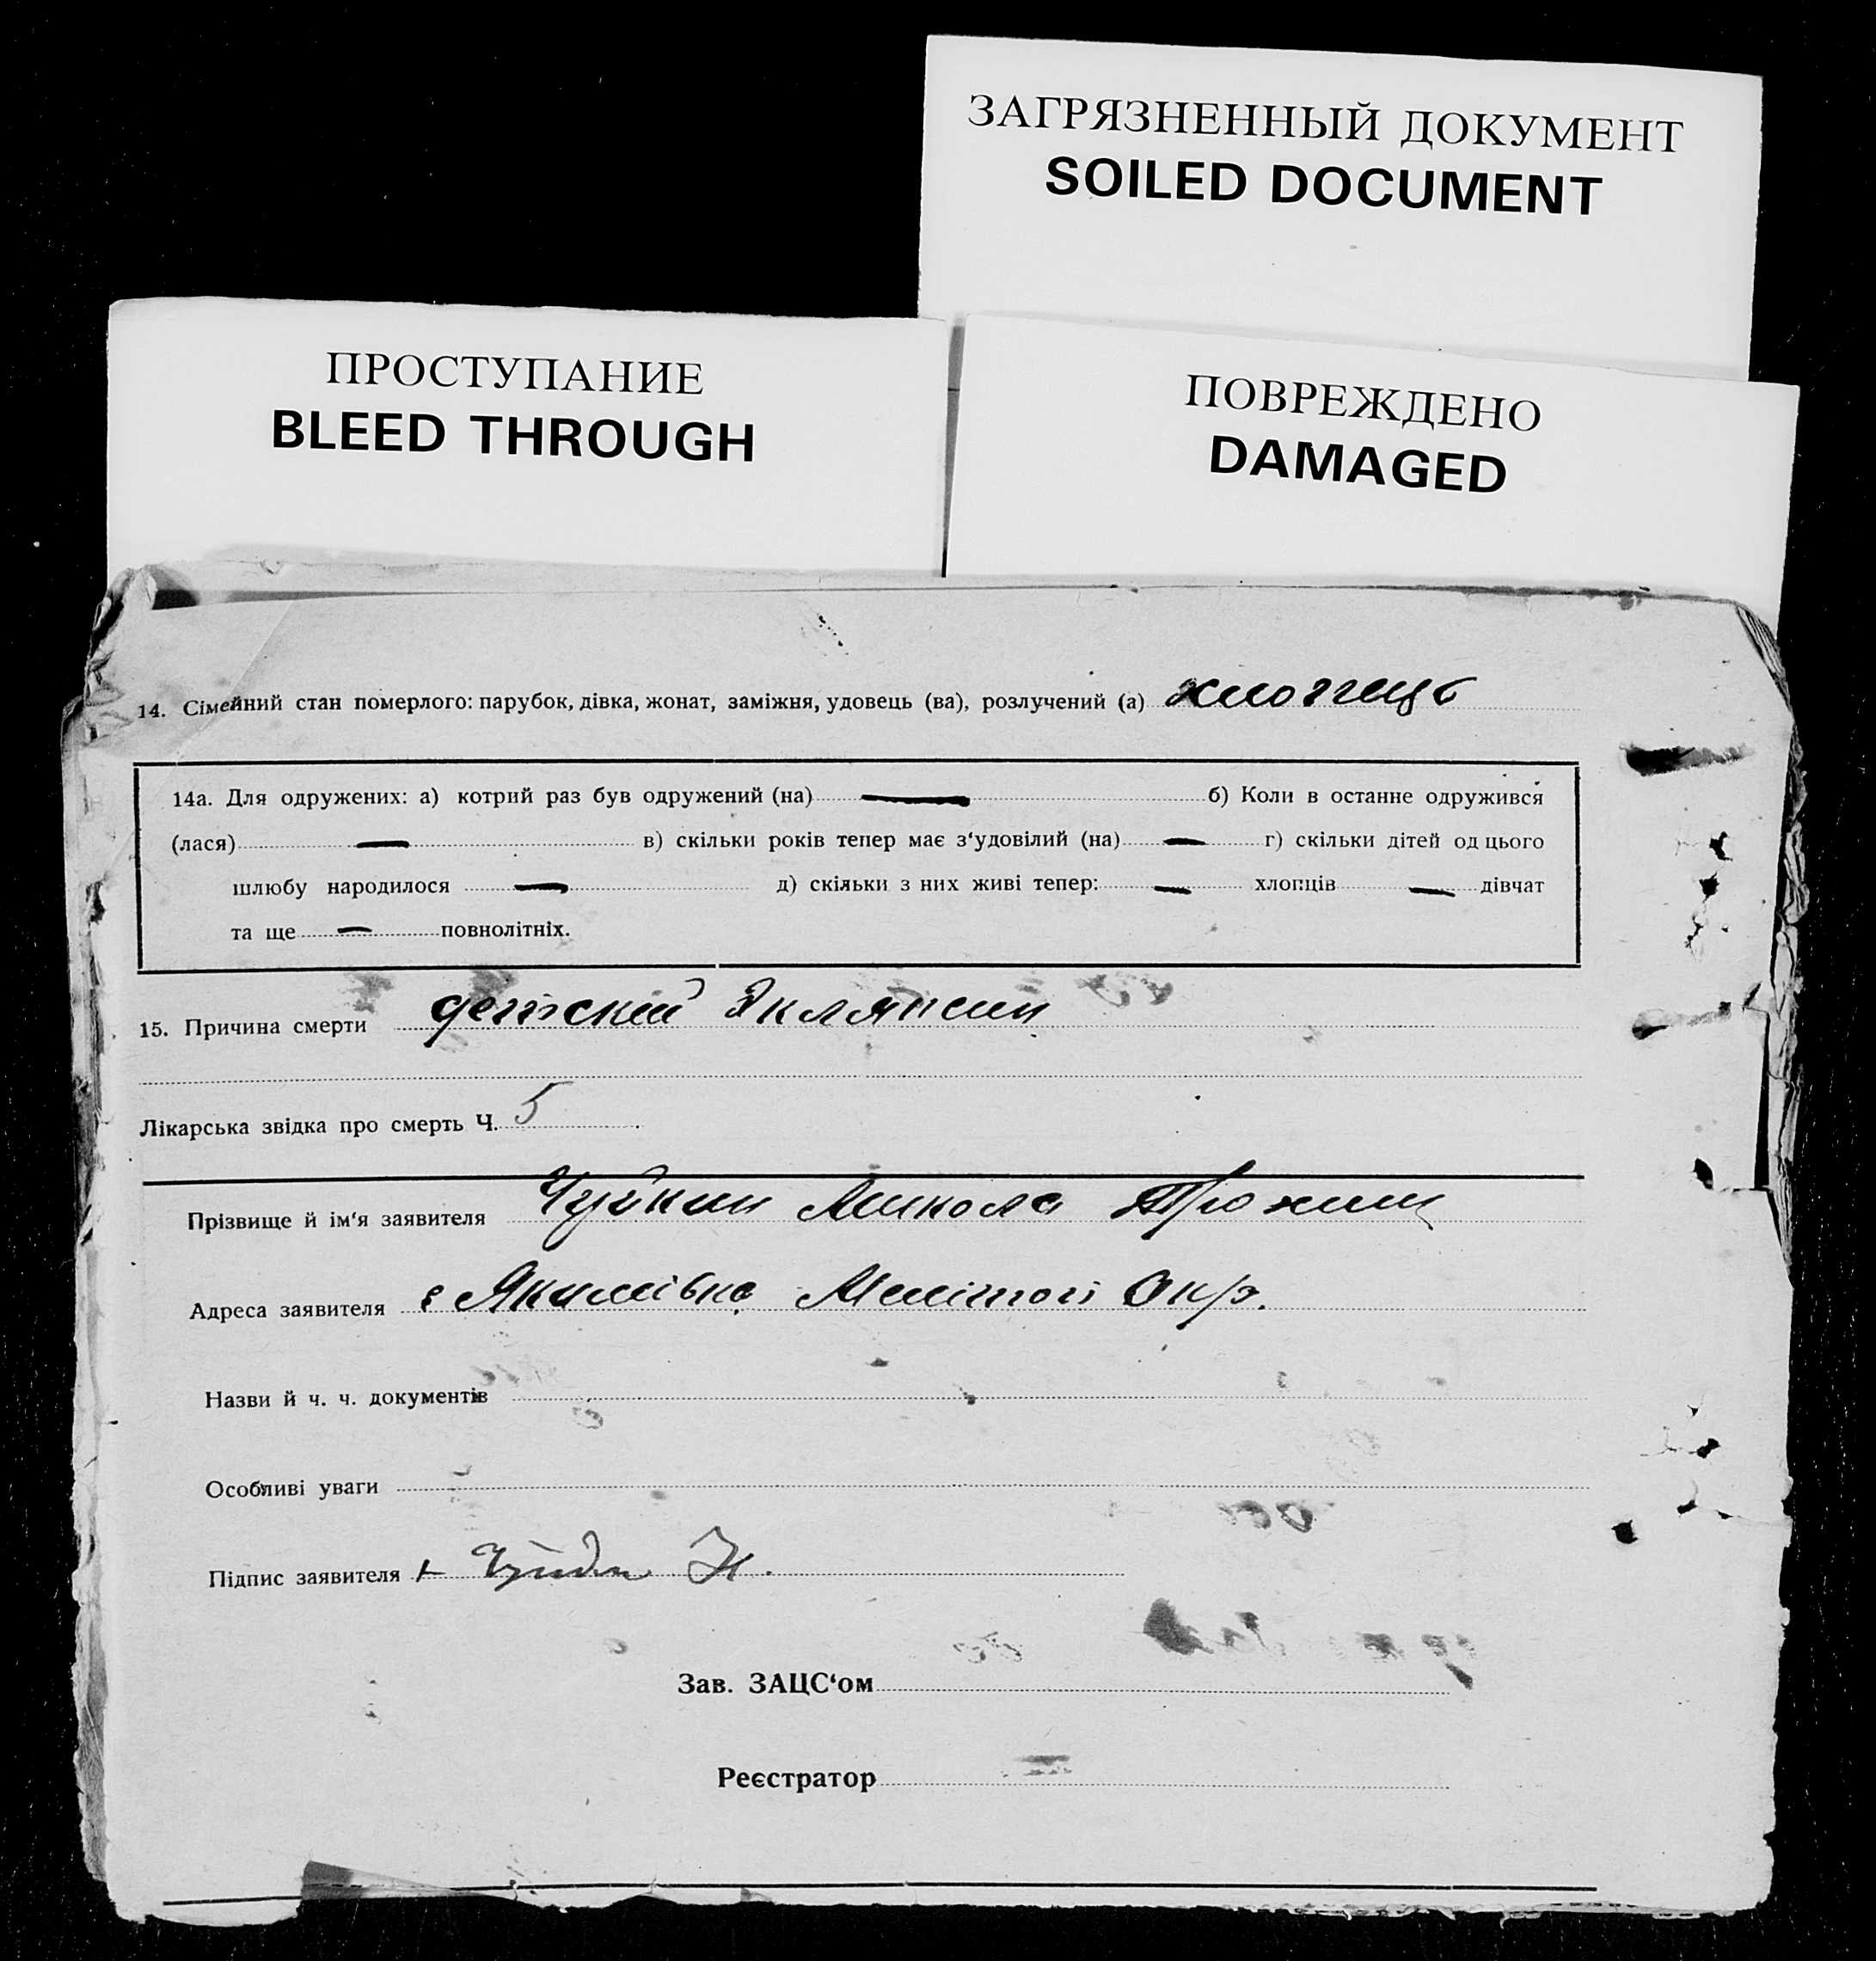 ЗАГРЯЗНЕННЫЙ ДОКУМЕНТ
SOILED DOCUMENT
ПРОСТУПАНИЕ
BLEED THROUGH
ПОВРЕЖДЕНО
DAMAGED
14. Сімейний стан померлого: парубок, дівка, жонат, заміжня, удовець (ва), розлучений (а) хлопець
14а. Для одружених: а) котрий раз був одружений (на) — б) Коли в останнє одружився
(лася) — в) скільки років тепер має з‘удовілий (на) — г) скільки дітей од цього
шлюбу народилося — д) скільки з них живі тепер: — хлопців — дівчат
та ще — повнолітніх.
15. Причина смерти детский Эклямпсии
Лікарська звідка про смерть Ч. 5
Прізвище й ім‘я заявителя Микола
Адреса заявителя с Якимівка Мелітоп Окр.
Назви й ч. ч. документів
Особливі уваги
Підпис заявителя + Н.
Зав. ЗАЦС‘ом
Реєстратор